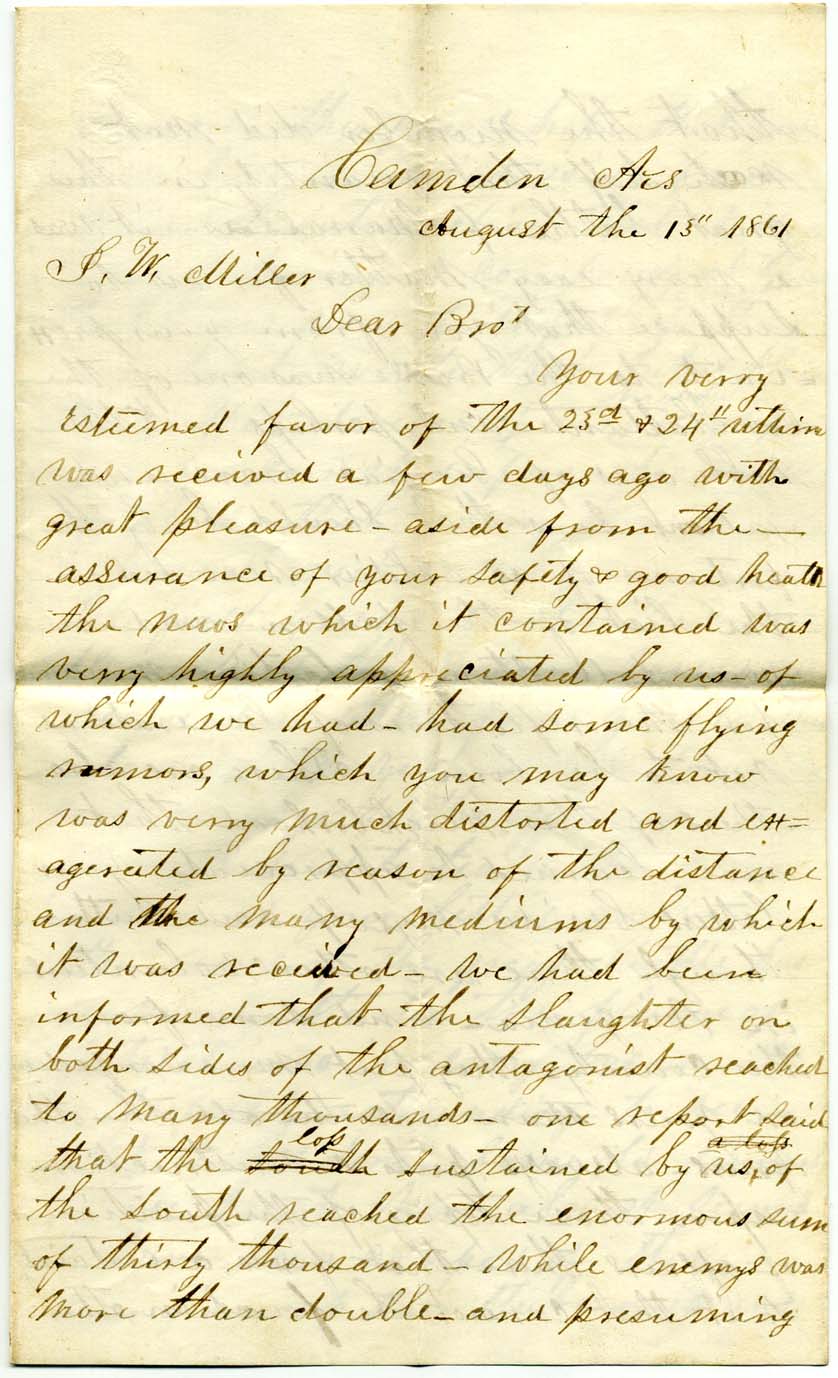 Camden Aks
August the 13" 1861
J. W. Miller
Dear Bro'
Your verry
esteemed favor of the 23d & 24" ultimo
was received a few days ago with
great pleasure - aside from the -
assurance of your safety & good heath
the news which it contained was
verry highly appreciated by us - of
which we had - had some flying
rumors, which you may know
was verry much distorted and ex=
agerated by reason of the distance
and the many mediums by which
it was received - we had been
informed that the slaughter on
both sides of the antagonist reached
to many thousands - one report said
that the south loss sustained by us, a loss of
the south reached the enormous sum
of thirty thousand - while enemys was
more than double - and presuming